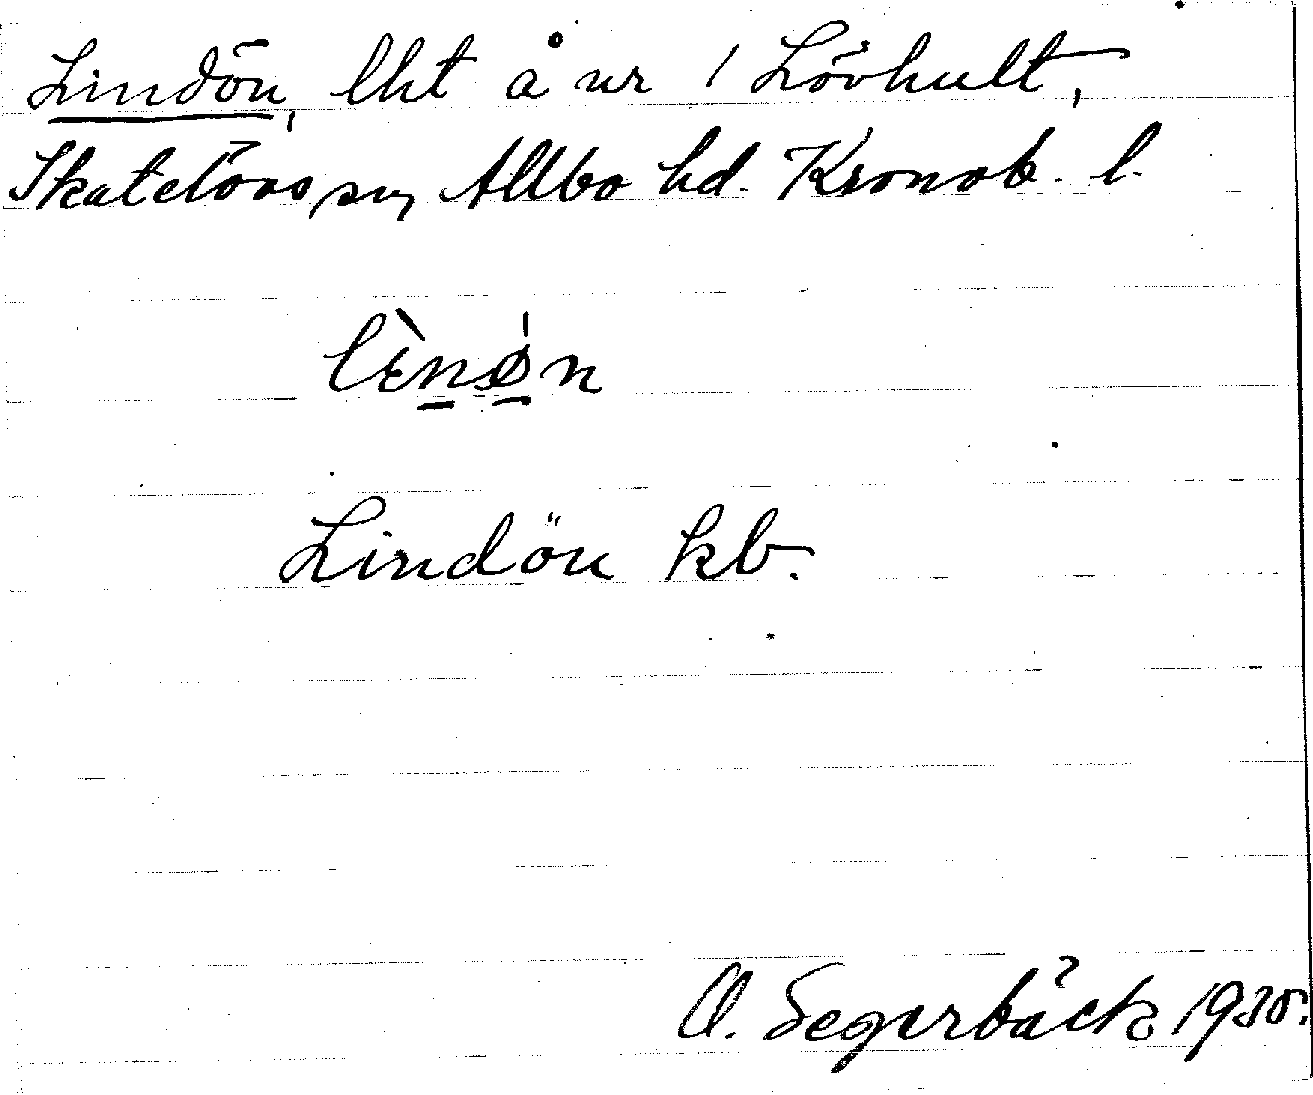 Lindön, lht å nr 1 Lövhult,
Skatelövs sn, Allbo hd. Kronob. l.
lɛ̀nø̍n
Lindön kb.
O. Segerbäck 1935.